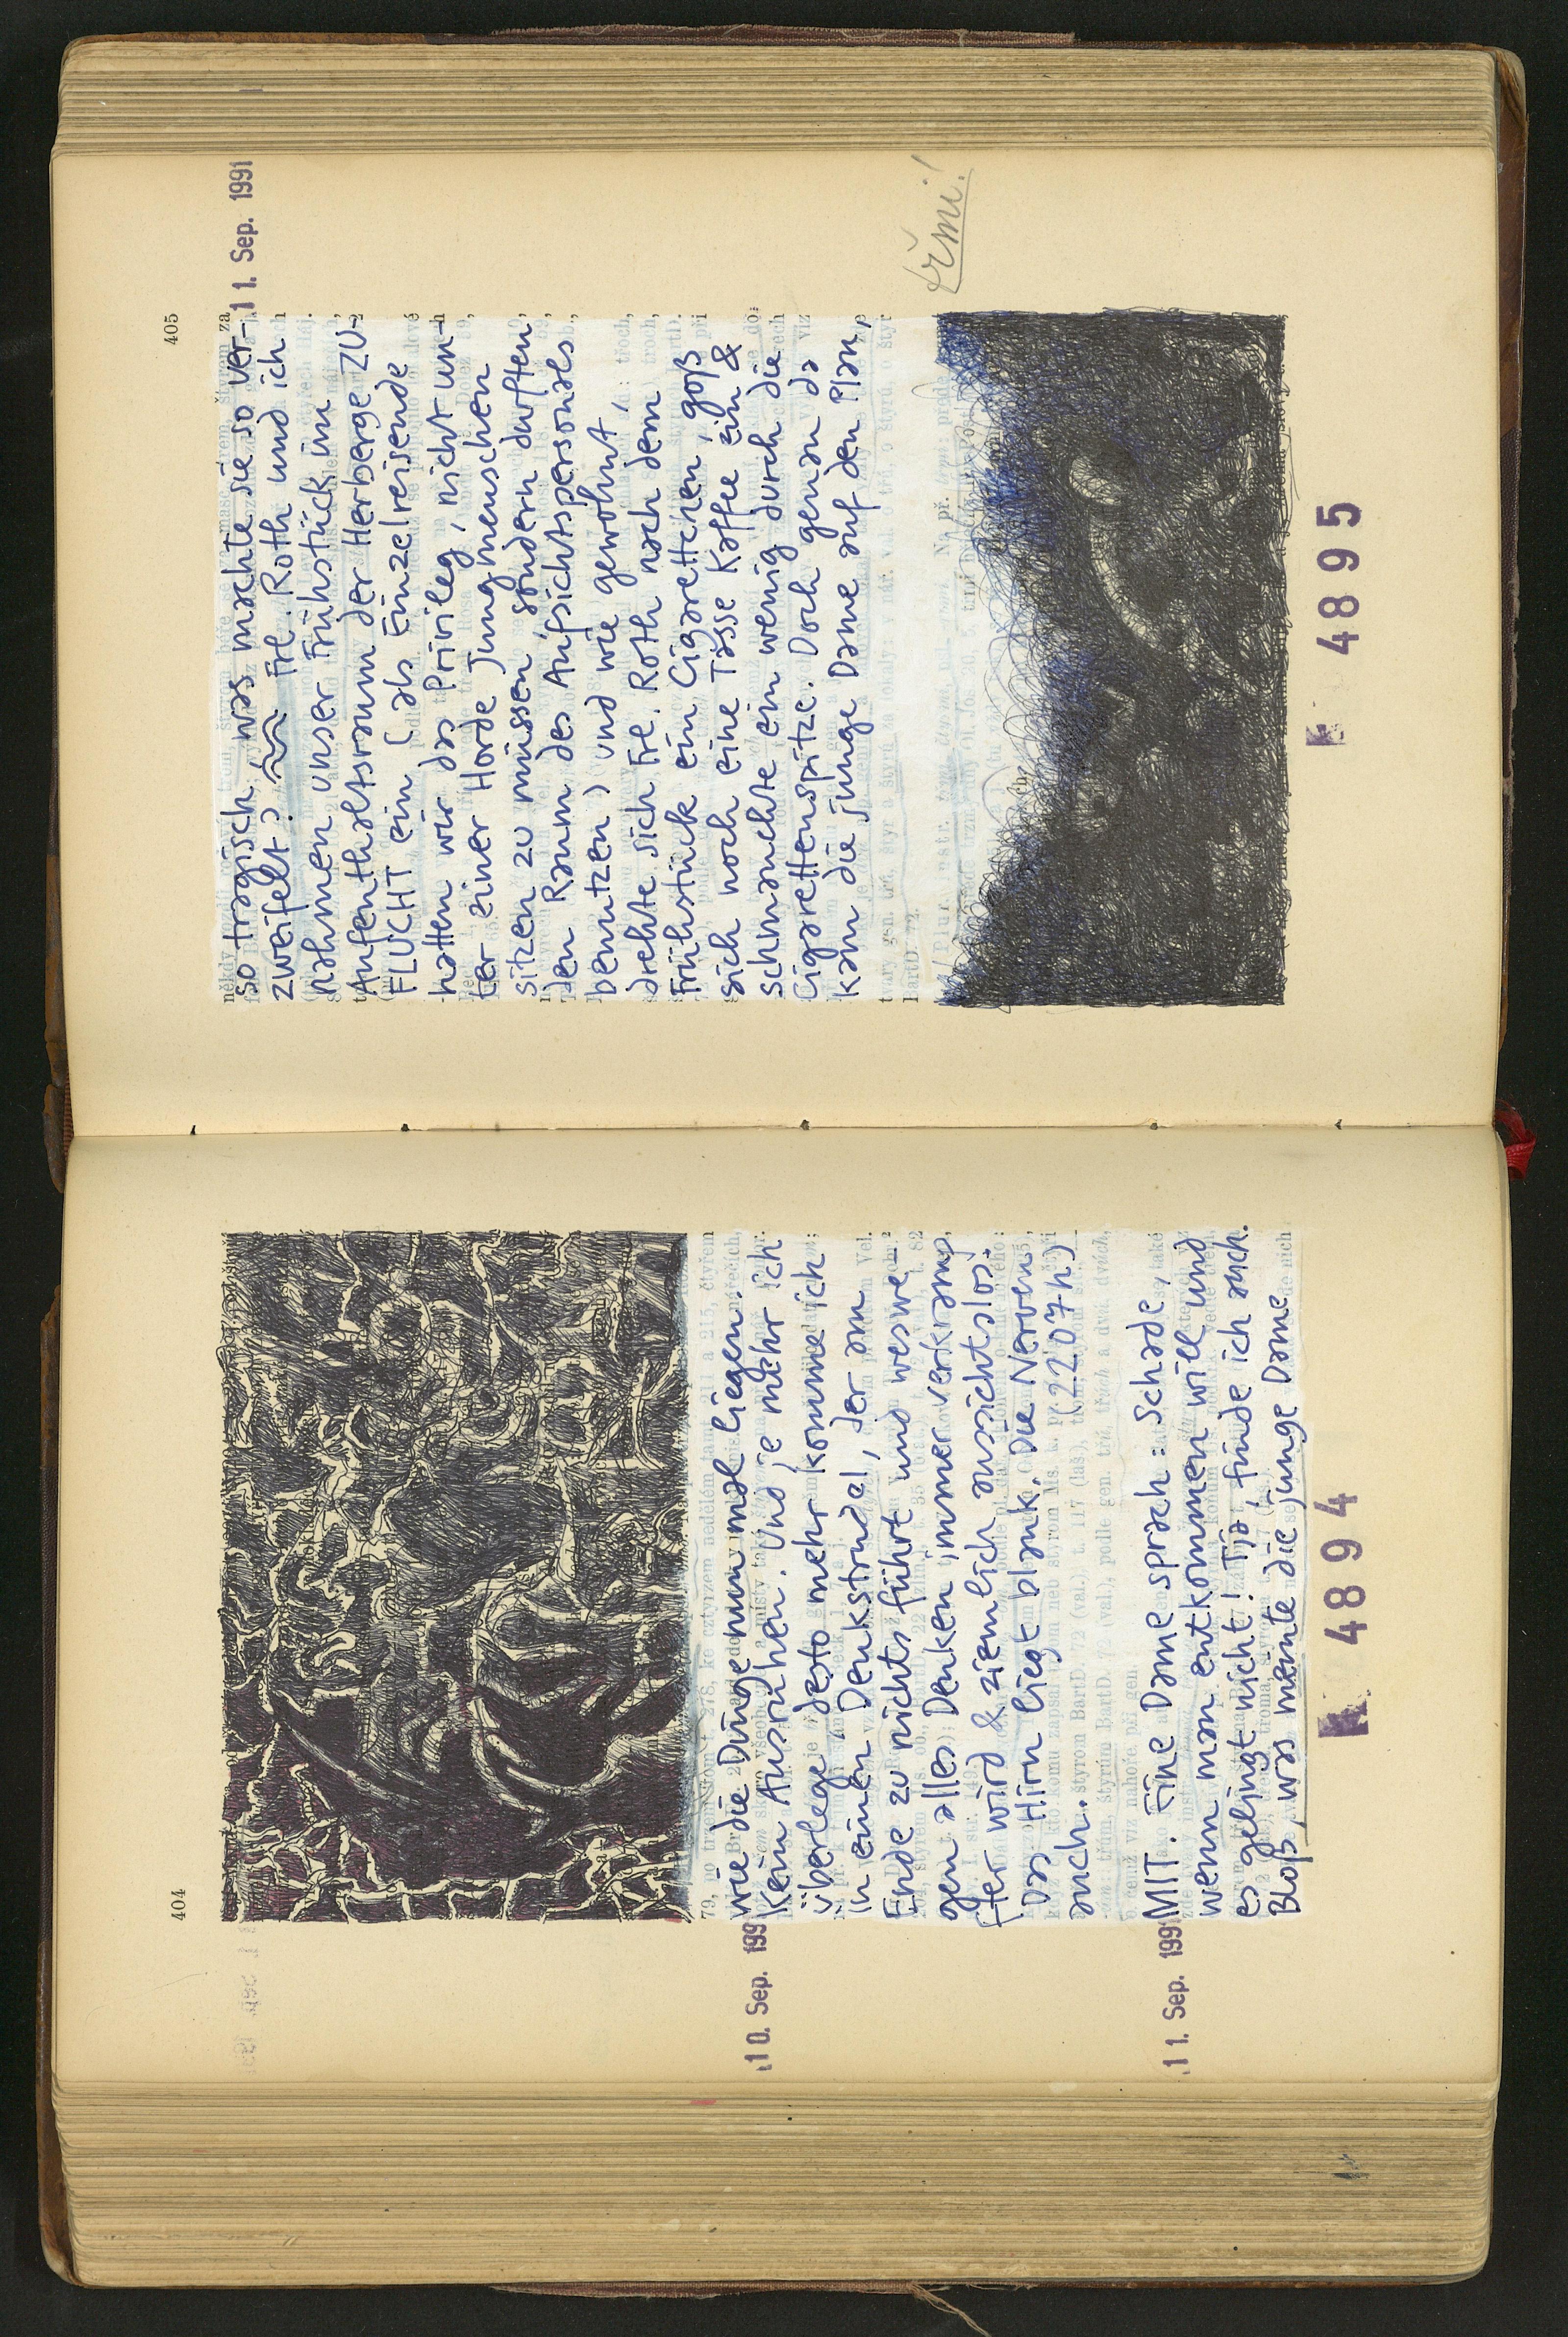 404
10. Sep. 199
wie die Dinge nun mal liegen.
Kein Ausruhen. Und je mehr ich
überlege desto mehr komme ich
in einen Denkstrudel, der am
Ende zu nichts führt und weswe-
gen alles Denken immer verkramp
fter wird & ziemlich aussichtslos.
Das Hirn liegt blank. Die Nerven
auch. (22.07h)
11. Sep. 199
MIT. Eine Dame sprach: Schade,
wenn man entkommen will und
es gelingt nicht! Tja, finde ich auch.
Bloß, was meinte die junge Dame
4894
405
11. Sep. 1991
so tragisch, was machte sie so ver-
zweifelt? Frl. Roth und ich
nahmen unser Frühstück im
Aufenthaltsraum der Herberge ZU-
FLUCHT ein (als Einzelreisende
hatten wir das Privileg, nicht un-
ter einer Horde Jungmenschen
sitzen zu müssen, sondern durften
den Raum des Aufsichtspersonales
benutzen) und wie gewohnt,
drehte sich Frl. Roth nach dem
Frühstück ein Cigarettchen, goß
sich noch eine Tasse Kaffee ein &
schmauchte ein wenig durch die
Cigarettenspitze. Doch genau da
kam die junge Dame auf den Plan,
BartD. 72.
třmi!
4895